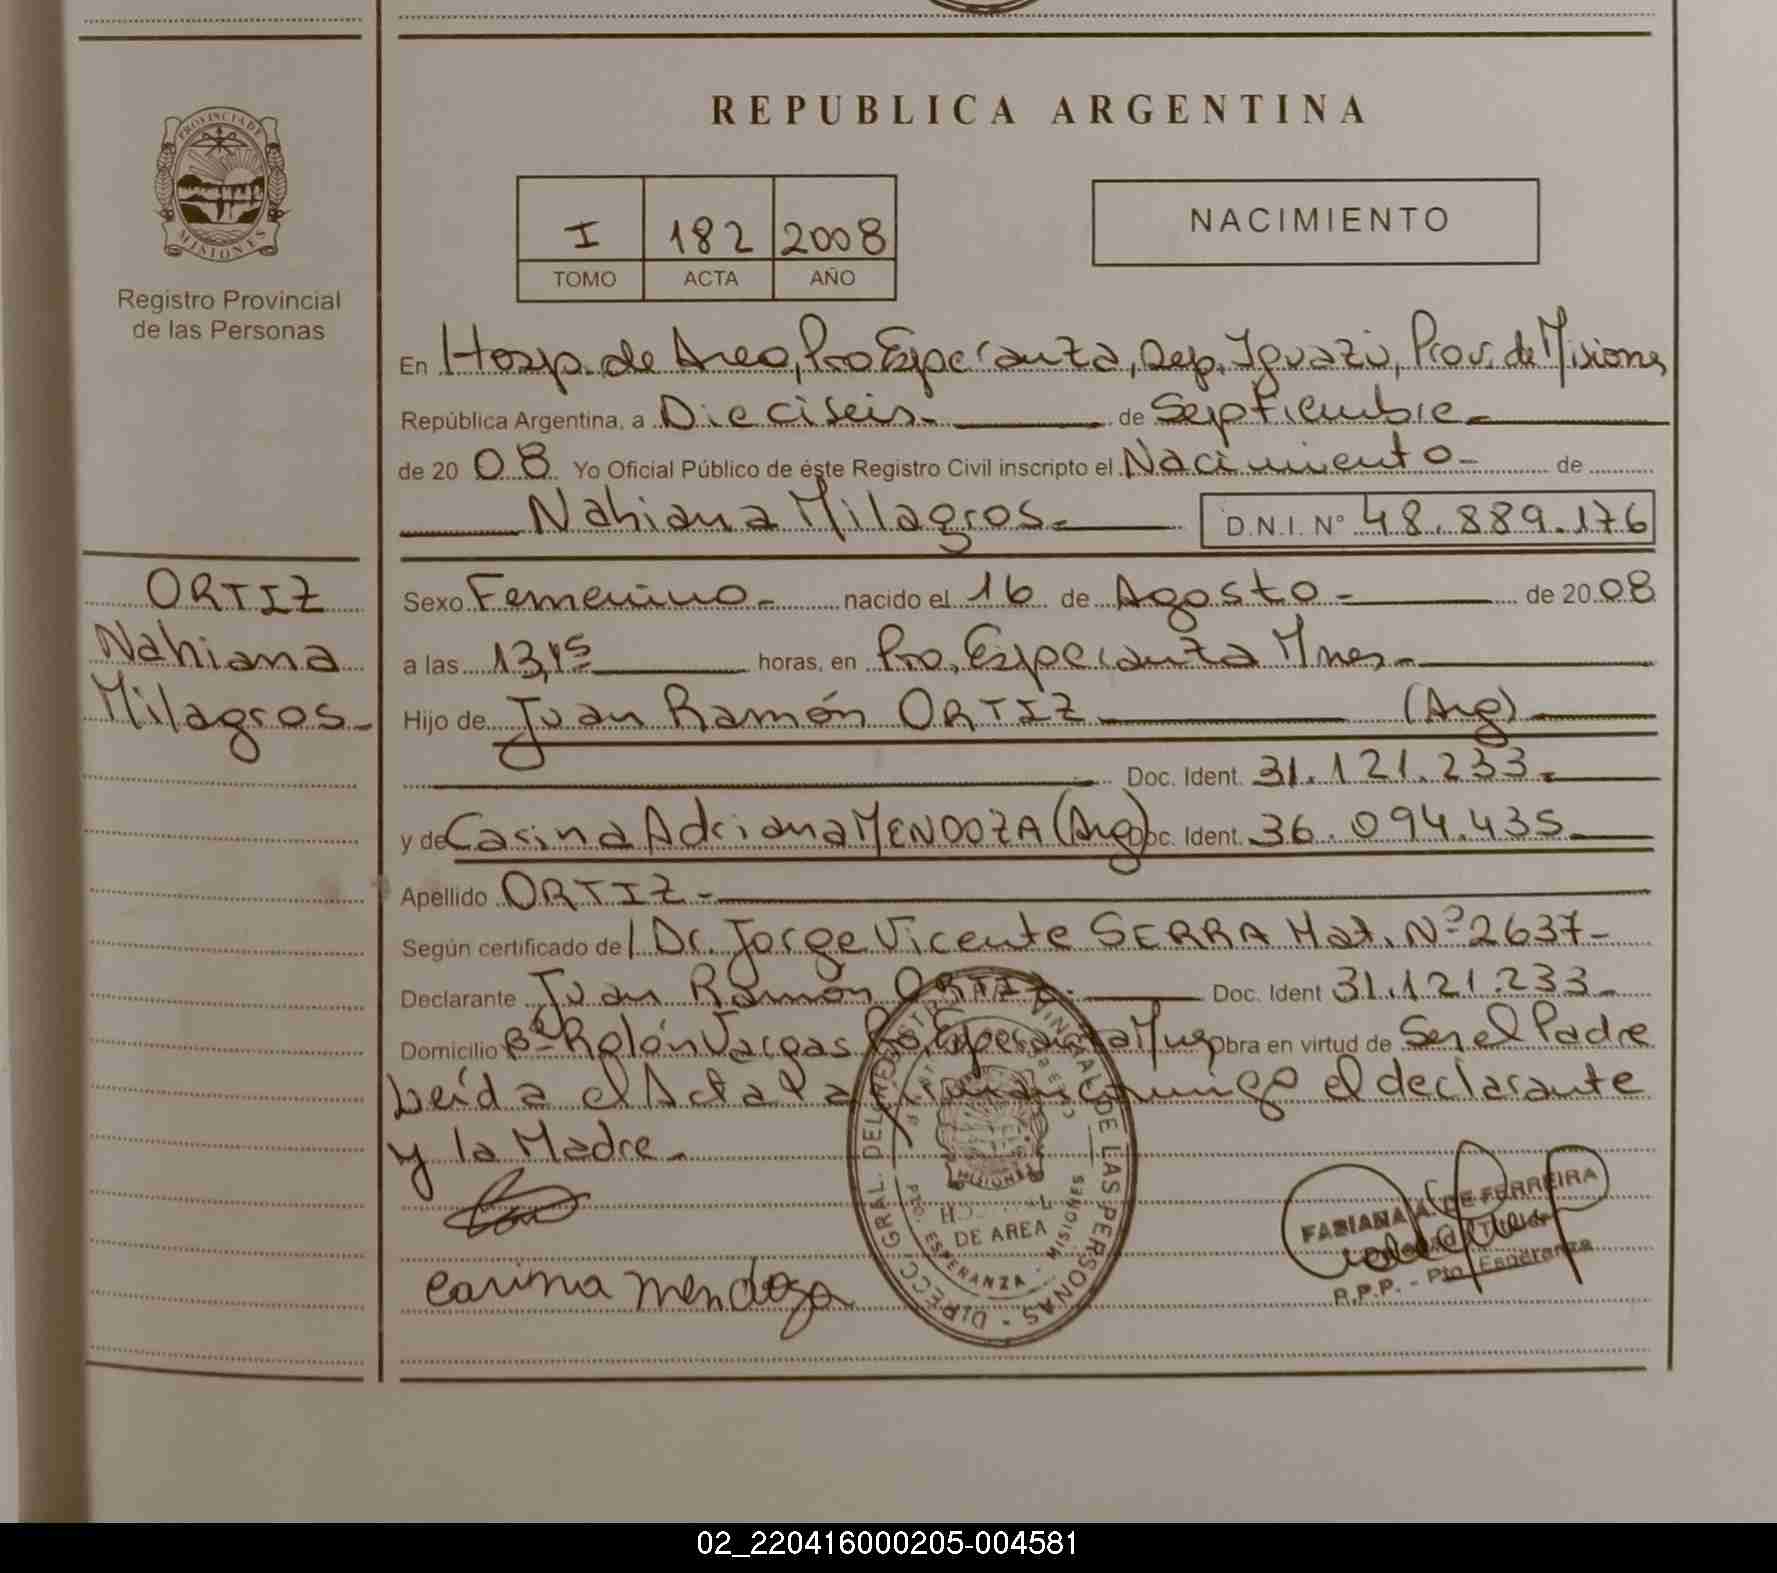 REPUBLICA ARGENTINA
PROVINCIA DE MISIONES
Registro Provincial
de las Personas
I 182 2008
TOMO ACTA AÑO
NACIMIENTO
En Hosp. de Area, Pto Esperanza, Dep. Iguazú, Prov. de Misiones
República Argentina, a Dieciseis.- de Septiembre.-
de 20 08 Yo Oficial Público de éste Registro Civil inscripto el Nacimiento- de
Nahiana Milagros.- D.N.I. N° 48.889.176
ORTIZ
Nahiana
Milagros.-
Sexo Femenino.- nacido el 16 de Agosto.- de 20 08
a las 13,15 horas, en Pto. Esperanza Mnes.-
Hijo de Juan Ramón ORTIZ (Arg)
Doc. Ident. 31.121.233.-
y de Carina Adriana MENDOZA (Arg) Doc. Ident. 36.094.435
Apellido ORTIZ.-
Según certificado de Dr. Jorge Vicente SERRA Mat. Nº 2637-
Declarante Juan Ramón ORTIZ.- Doc. Ident. 31.121.233-
Domicilio Bº Rolón Vargas Pto, Esperanza Mnes Obra en virtud de Ser el Padre
Leída el Acta la firman conmigo el declarante
y la Madre.-
Carina Mendoza
DIRECC. GRAL. DEL REGISTRO PROVINCIAL DE LAS PERSONAS
MISIONES
DE AREA
PTO. ESPERANZA - MISIONES
FABIANA A. DE FERREIRA
R.P.P. - Pto. Esperanza
02_220416000205-004581